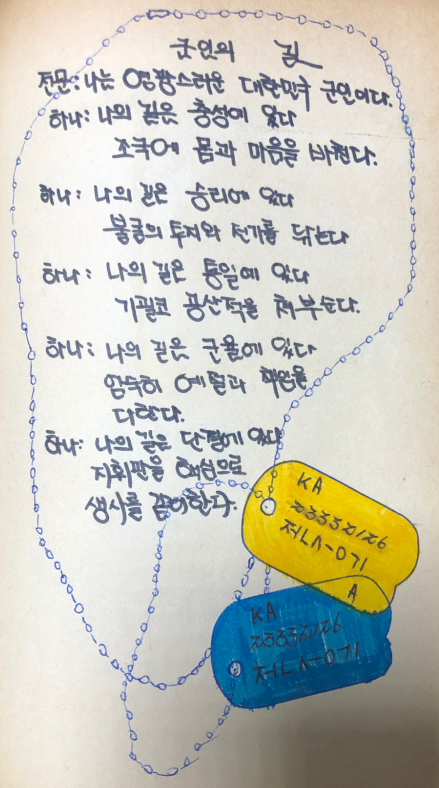 군인의 길
전문: 나는 영광스러운 대한민국 군인이다.
하나: 나의 길은 충성에 있다
조국에 몸과 마음을 바친다.
하나: 나의 길은 승리에 있다
불굴의 투지와 전기를 닦는다
하나: 나의 길은 통일에 있다
기필코 공산적을 쳐부순다.
하나: 나의 길은 군율에 있다
엄숙히 예절과 책임을
다한다.
하나: 나의 길은 단결에 있다
지휘관을 핵심으로
생사를 같이한다.
KA
A
KA